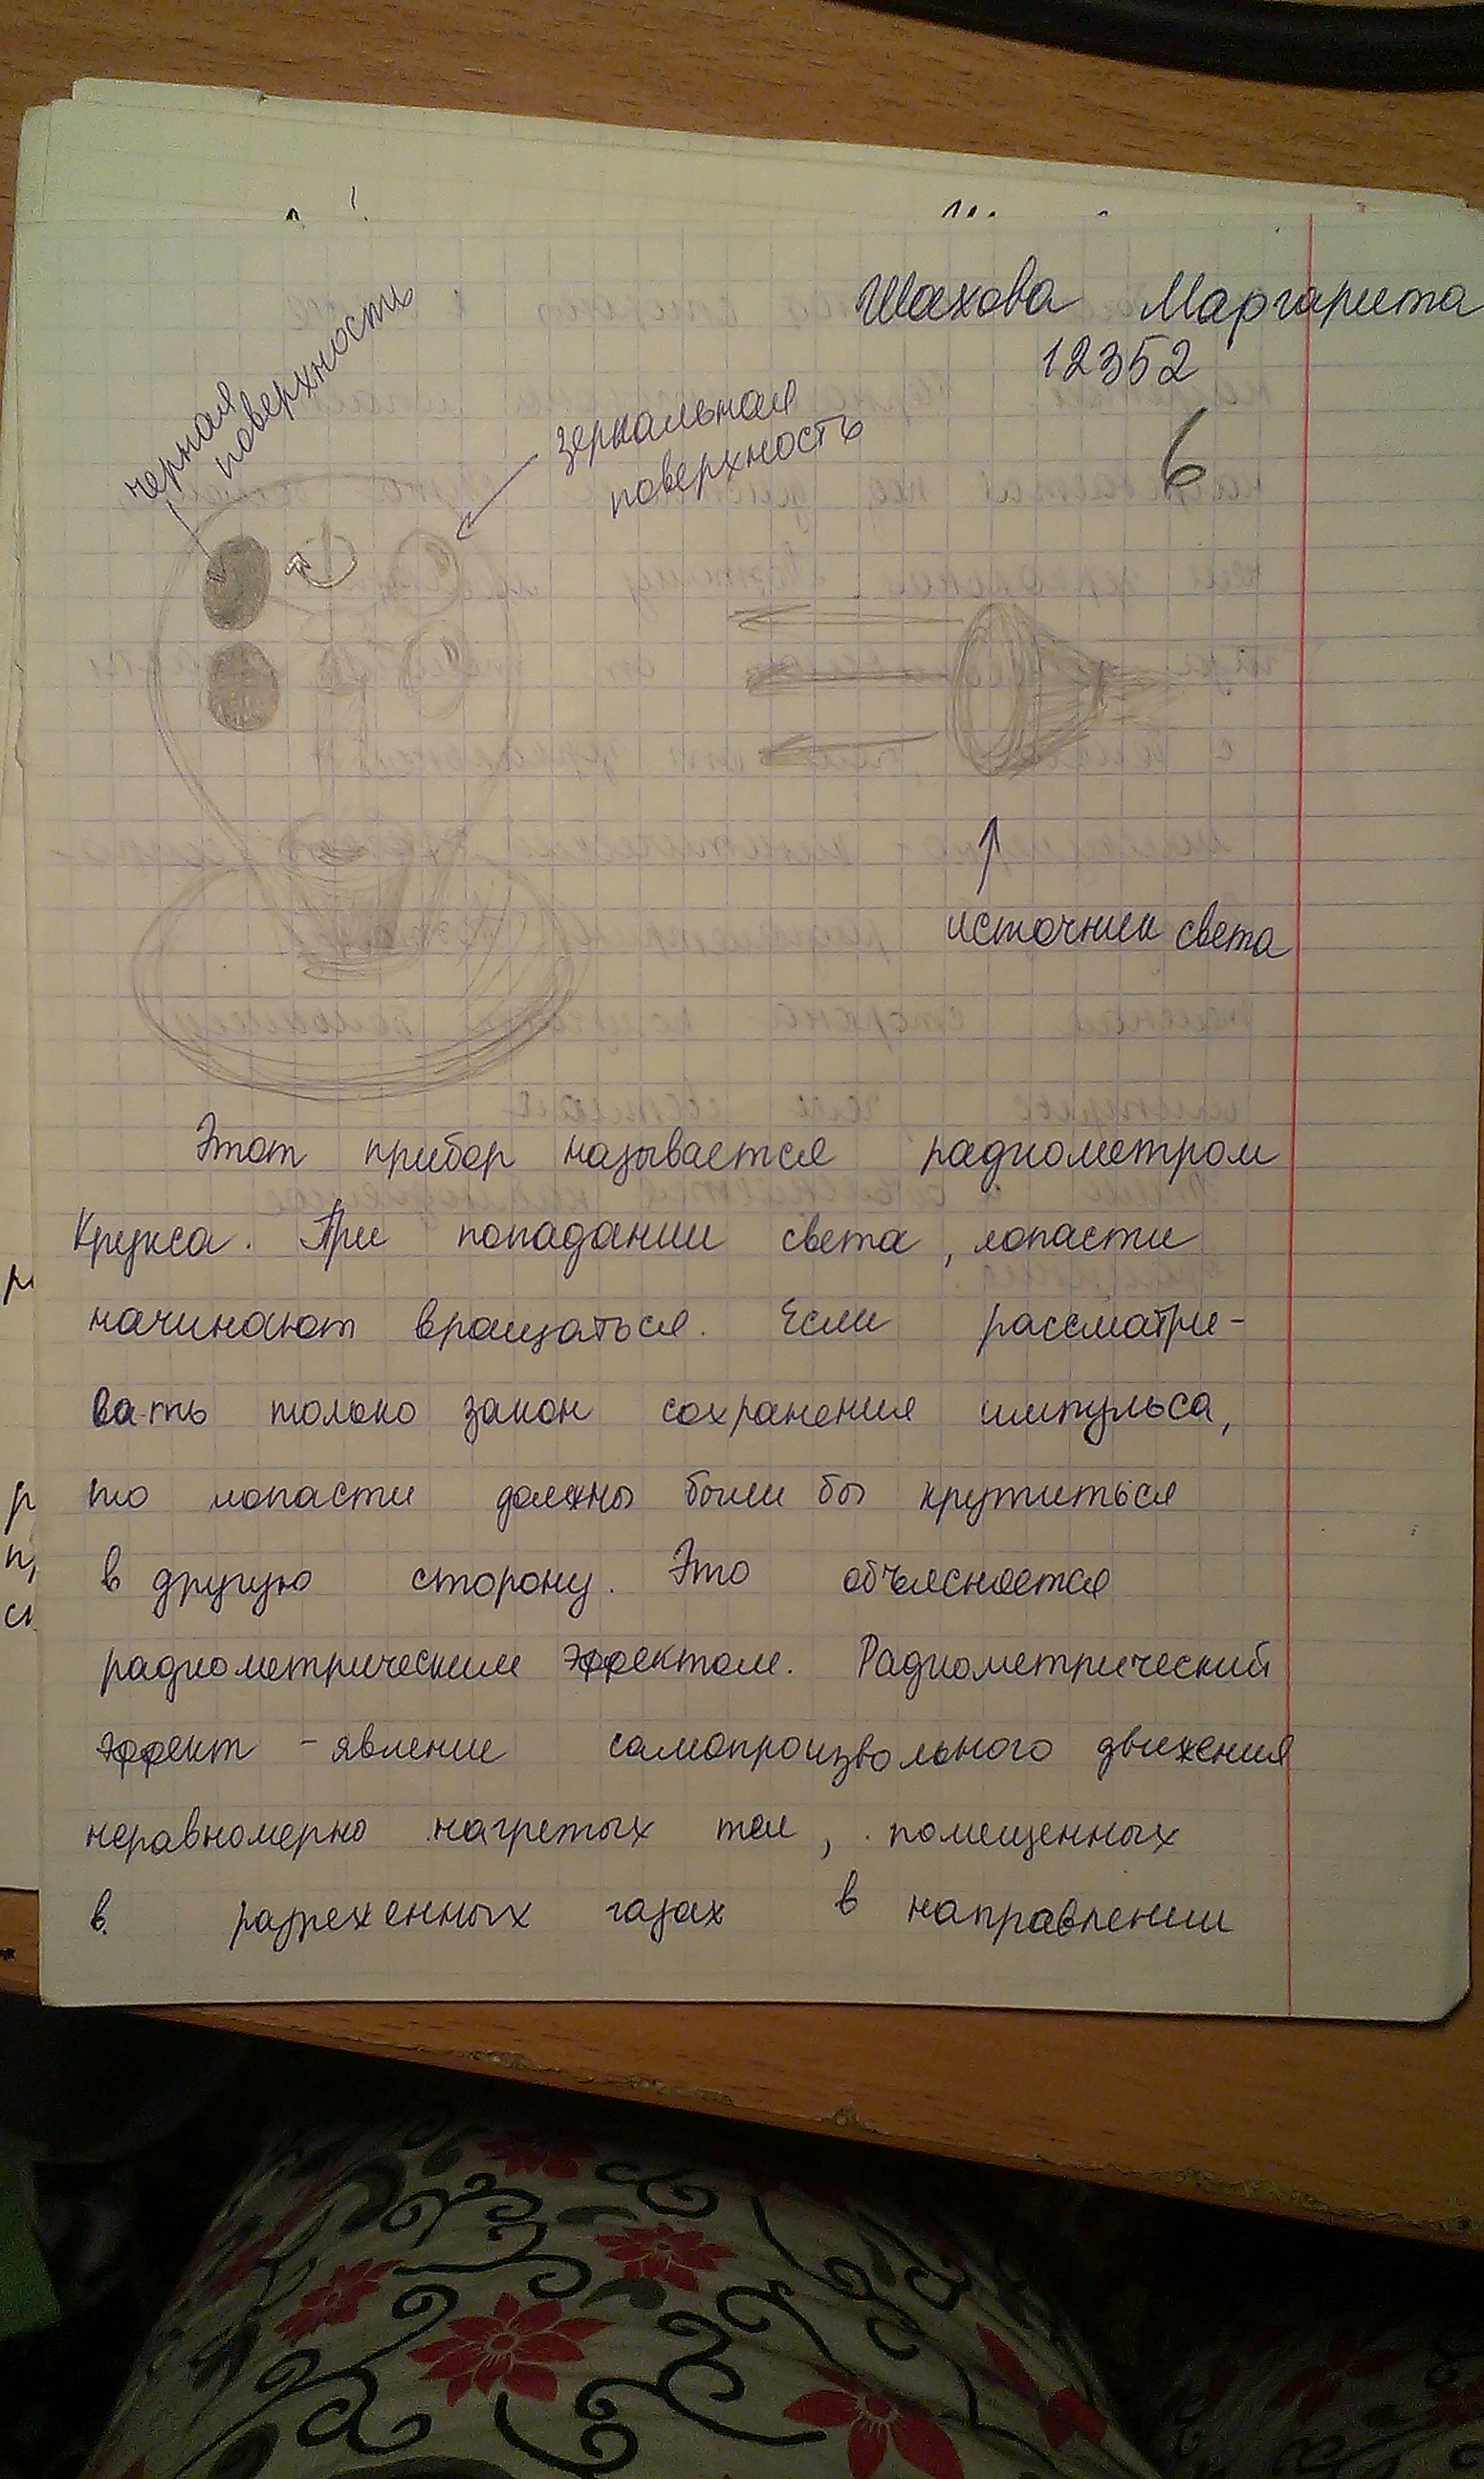 Шахова Маргарита
12352
6
черная
поверхность
зеркальная
поверхность
источник света
Этот прибор называется радиометром
Крукса. При попадании света, лопасти
начинают вращаться. Если рассматри-
вать только закон сохранения импульса,
то лопасти должны были бы крутиться
в другую сторону. Это объясняется
радиометрическим эффектом. Радиометрический
эффект - явление самопроизвольного движения
неравномерно нагретых тел, помещенных
в разреженных газах в направлении